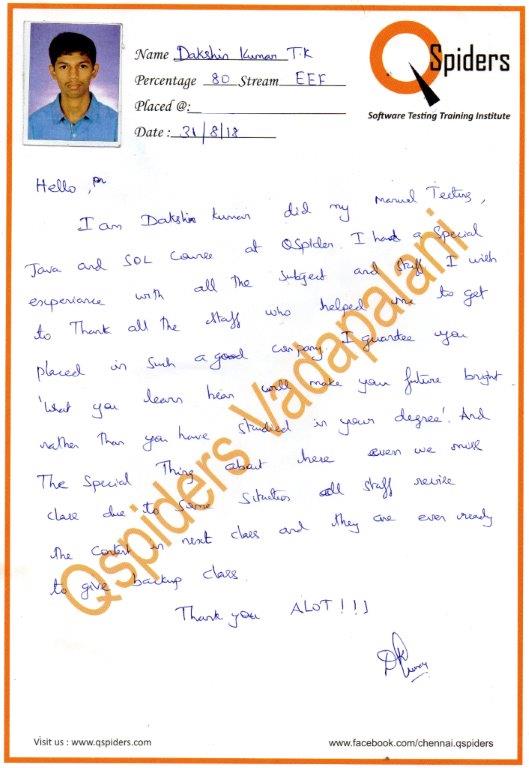 Name Dakshin Kumar T.K
Percentage 80 Stream EEE
Placed @:
Date : 31/8/18
QSpiders
Software Testing Training Institute
Hello,
I am Dakshin Kumar did my Manual Testing,
Java and SQL Course at QSpider. I had a Special
experiance with all the Subject and Staff I wish
to Thank all the Staff who helped me to get
placed in Such a good company. I guarantee you
'what you learn hear will make you future bright
rather than you have studied in your degree'. And
The Special Thing about here even we miss
class due to Some Situation all staff revise
the content in next class and they are ever ready
to give backup class.
Thank you ALOT !!!
Qspiders Vadapalani
Visit us : www.qspiders.com
www.facebook.com/chennai.qspiders